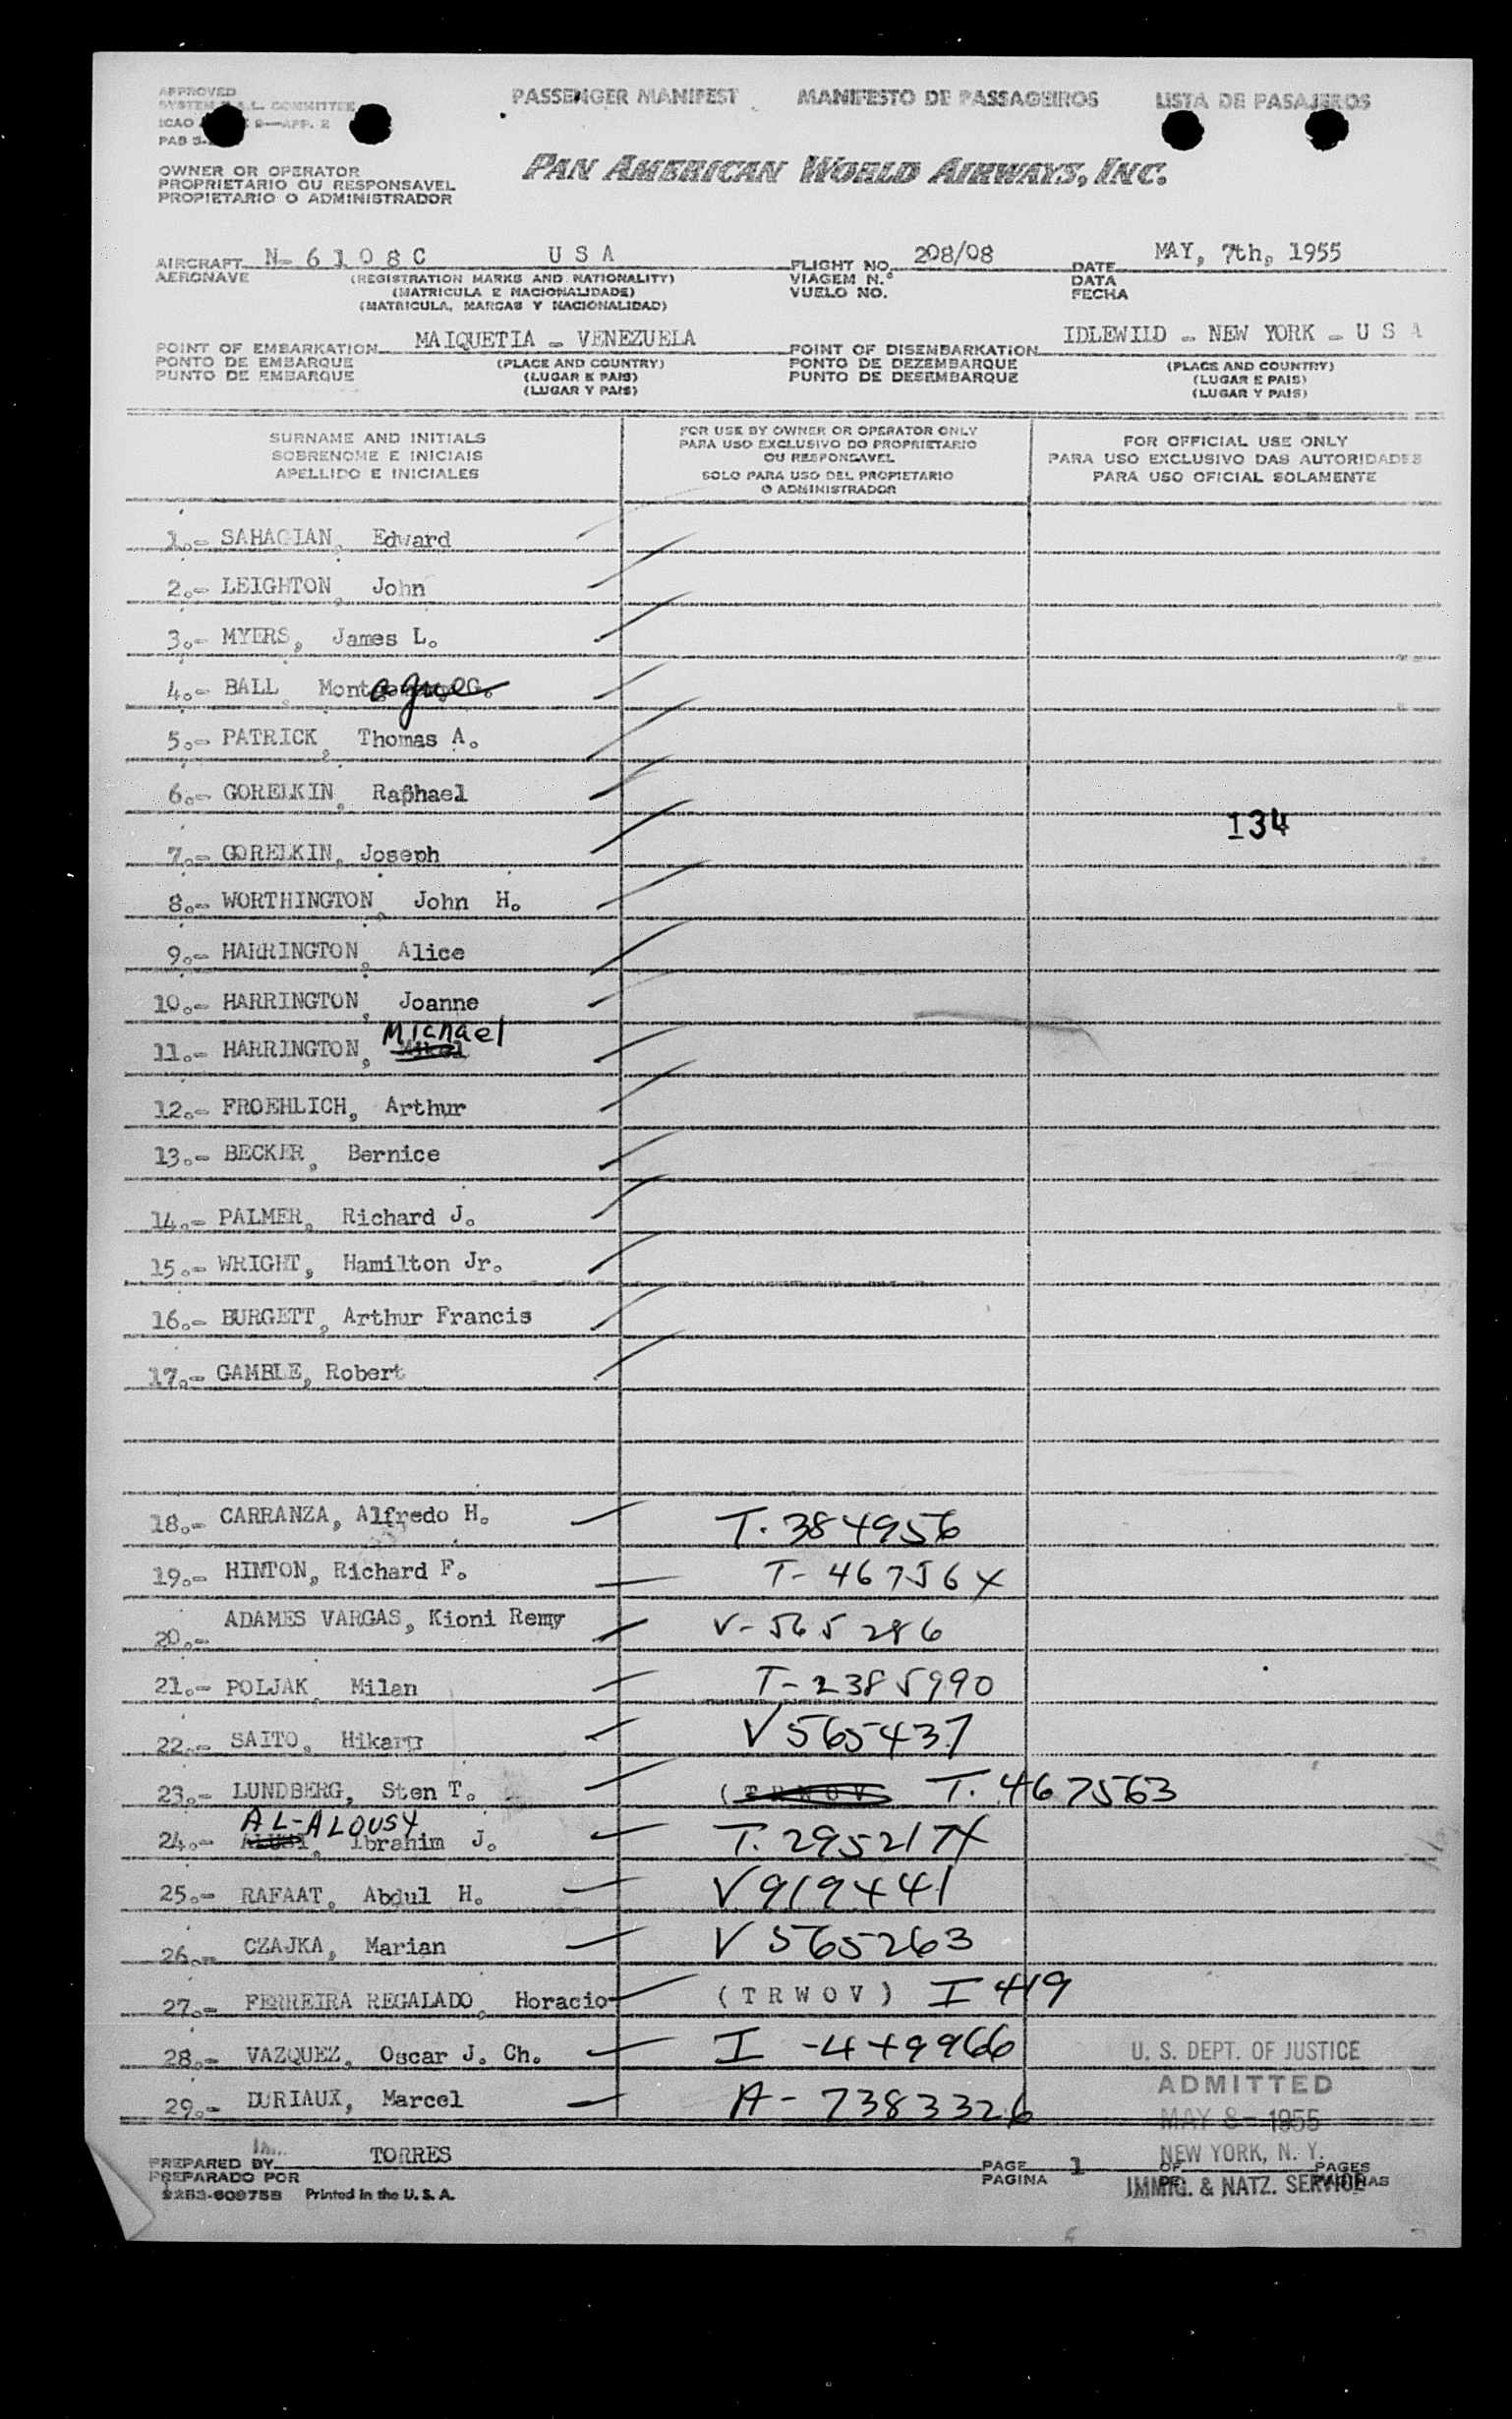 APPROVED
SYSTEM COMMITTEE
ICAO 9—APP. 2
PASSENGER MANIFEST MANIFESTO DE PASSAGEIROS LISTA DE PASAJEROS
OWNER OR OPERATOR
PROPRIETARIO OU RESPONSAVEL
PROPIETARIO O ADMINISTRADOR
PAN AMERICAN WORLD AIRWAYS, INC.
AIRCRAFT N- 6 1 0 8 C U S A FLIGHT NO. 208/08 DATE MAY, 7th, 1955
AERONAVE (REGISTRATION MARKS AND NATIONALITY) VIAGEM N.º DATA
(MATRICULA E NACIONALIDADE) VUELO NO. FECHA
(MATRICULA, MARCAS Y NACIONALIDAD)
POINT OF EMBARKATION MAIQUETIA - VENEZUELA POINT OF DISEMBARKATION IDLEWILD - NEW YORK - U S A
PONTO DE EMBARQUE (PLACE AND COUNTRY) PONTO DE DEZEMBARQUE (PLACE AND COUNTRY)
PUNTO DE EMBARQUE (LUGAR E PAIS) PUNTO DE DESEMBARQUE (LUGAR E PAIS)
(LUGAR Y PAIS) (LUGAR Y PAIS)
SURNAME AND INITIALS
SOBRENOME E INICIAIS
APELLIDO E INICIALES
FOR USE BY OWNER OR OPERATOR ONLY
PARA USO EXCLUSIVO DO PROPRIETARIO
OU RESPONSAVEL
SOLO PARA USO DEL PROPIETARIO
O ADMINISTRADOR
FOR OFFICIAL USE ONLY
PARA USO EXCLUSIVO DAS AUTORIDADES
PARA USO OFICIAL SOLAMENTE
1.- SAHAGIAN, Edward
2.- LEIGHTON, John
3.- MYERS, James L.
4.- BALL, Montague G.
5.- PATRICK, Thomas A.
6.- GORELKIN, Raphael
134
7.- GORELKIN, Joseph
8.- WORTHINGTON, John H.
9.- HARRINGTON, Alice
10.- HARRINGTON, Joanne
11.- HARRINGTON, Michael
12.- FROEHLICH, Arthur
13.- BECKER, Bernice
14.- PALMER, Richard J.
15.- WRIGHT, Hamilton Jr.
16.- BURGETT, Arthur Francis
17.- GAMBLE, Robert
18.- CARRANZA, Alfredo H. T. 384956
19.- HINTON, Richard F. T- 467564
20.- ADAMES VARGAS, Kioni Remy V- 565286
21.- POLJAK, Milan T-2385990
22.- SAITO, Hikaru V 565437
23.- LUNDBERG, Sten T. (T R W O V T. 467563
24.- AL-ALOUSY ALUSI, Ibrahim J. T. 2952174
25.- RAFAAT, Abdul H. V919441
26.- CZAJKA, Marian V 565263
27.- FERREIRA REGALADO, Horacio (T R W O V) I 419
28.- VAZQUEZ, Oscar J. Ch. I -449966
29.- DURIAUX, Marcel A- 7383326
U. S. DEPT. OF JUSTICE
ADMITTED
MAY 8- 1955
NEW YORK, N. Y.
IMMIG. & NATZ. SERVICE
PREPARED BY TORRES PAGE 1 OF PAGES
PREPARADO POR PAGINA DE PAGINAS
2253-60975B Printed in the U. S. A.